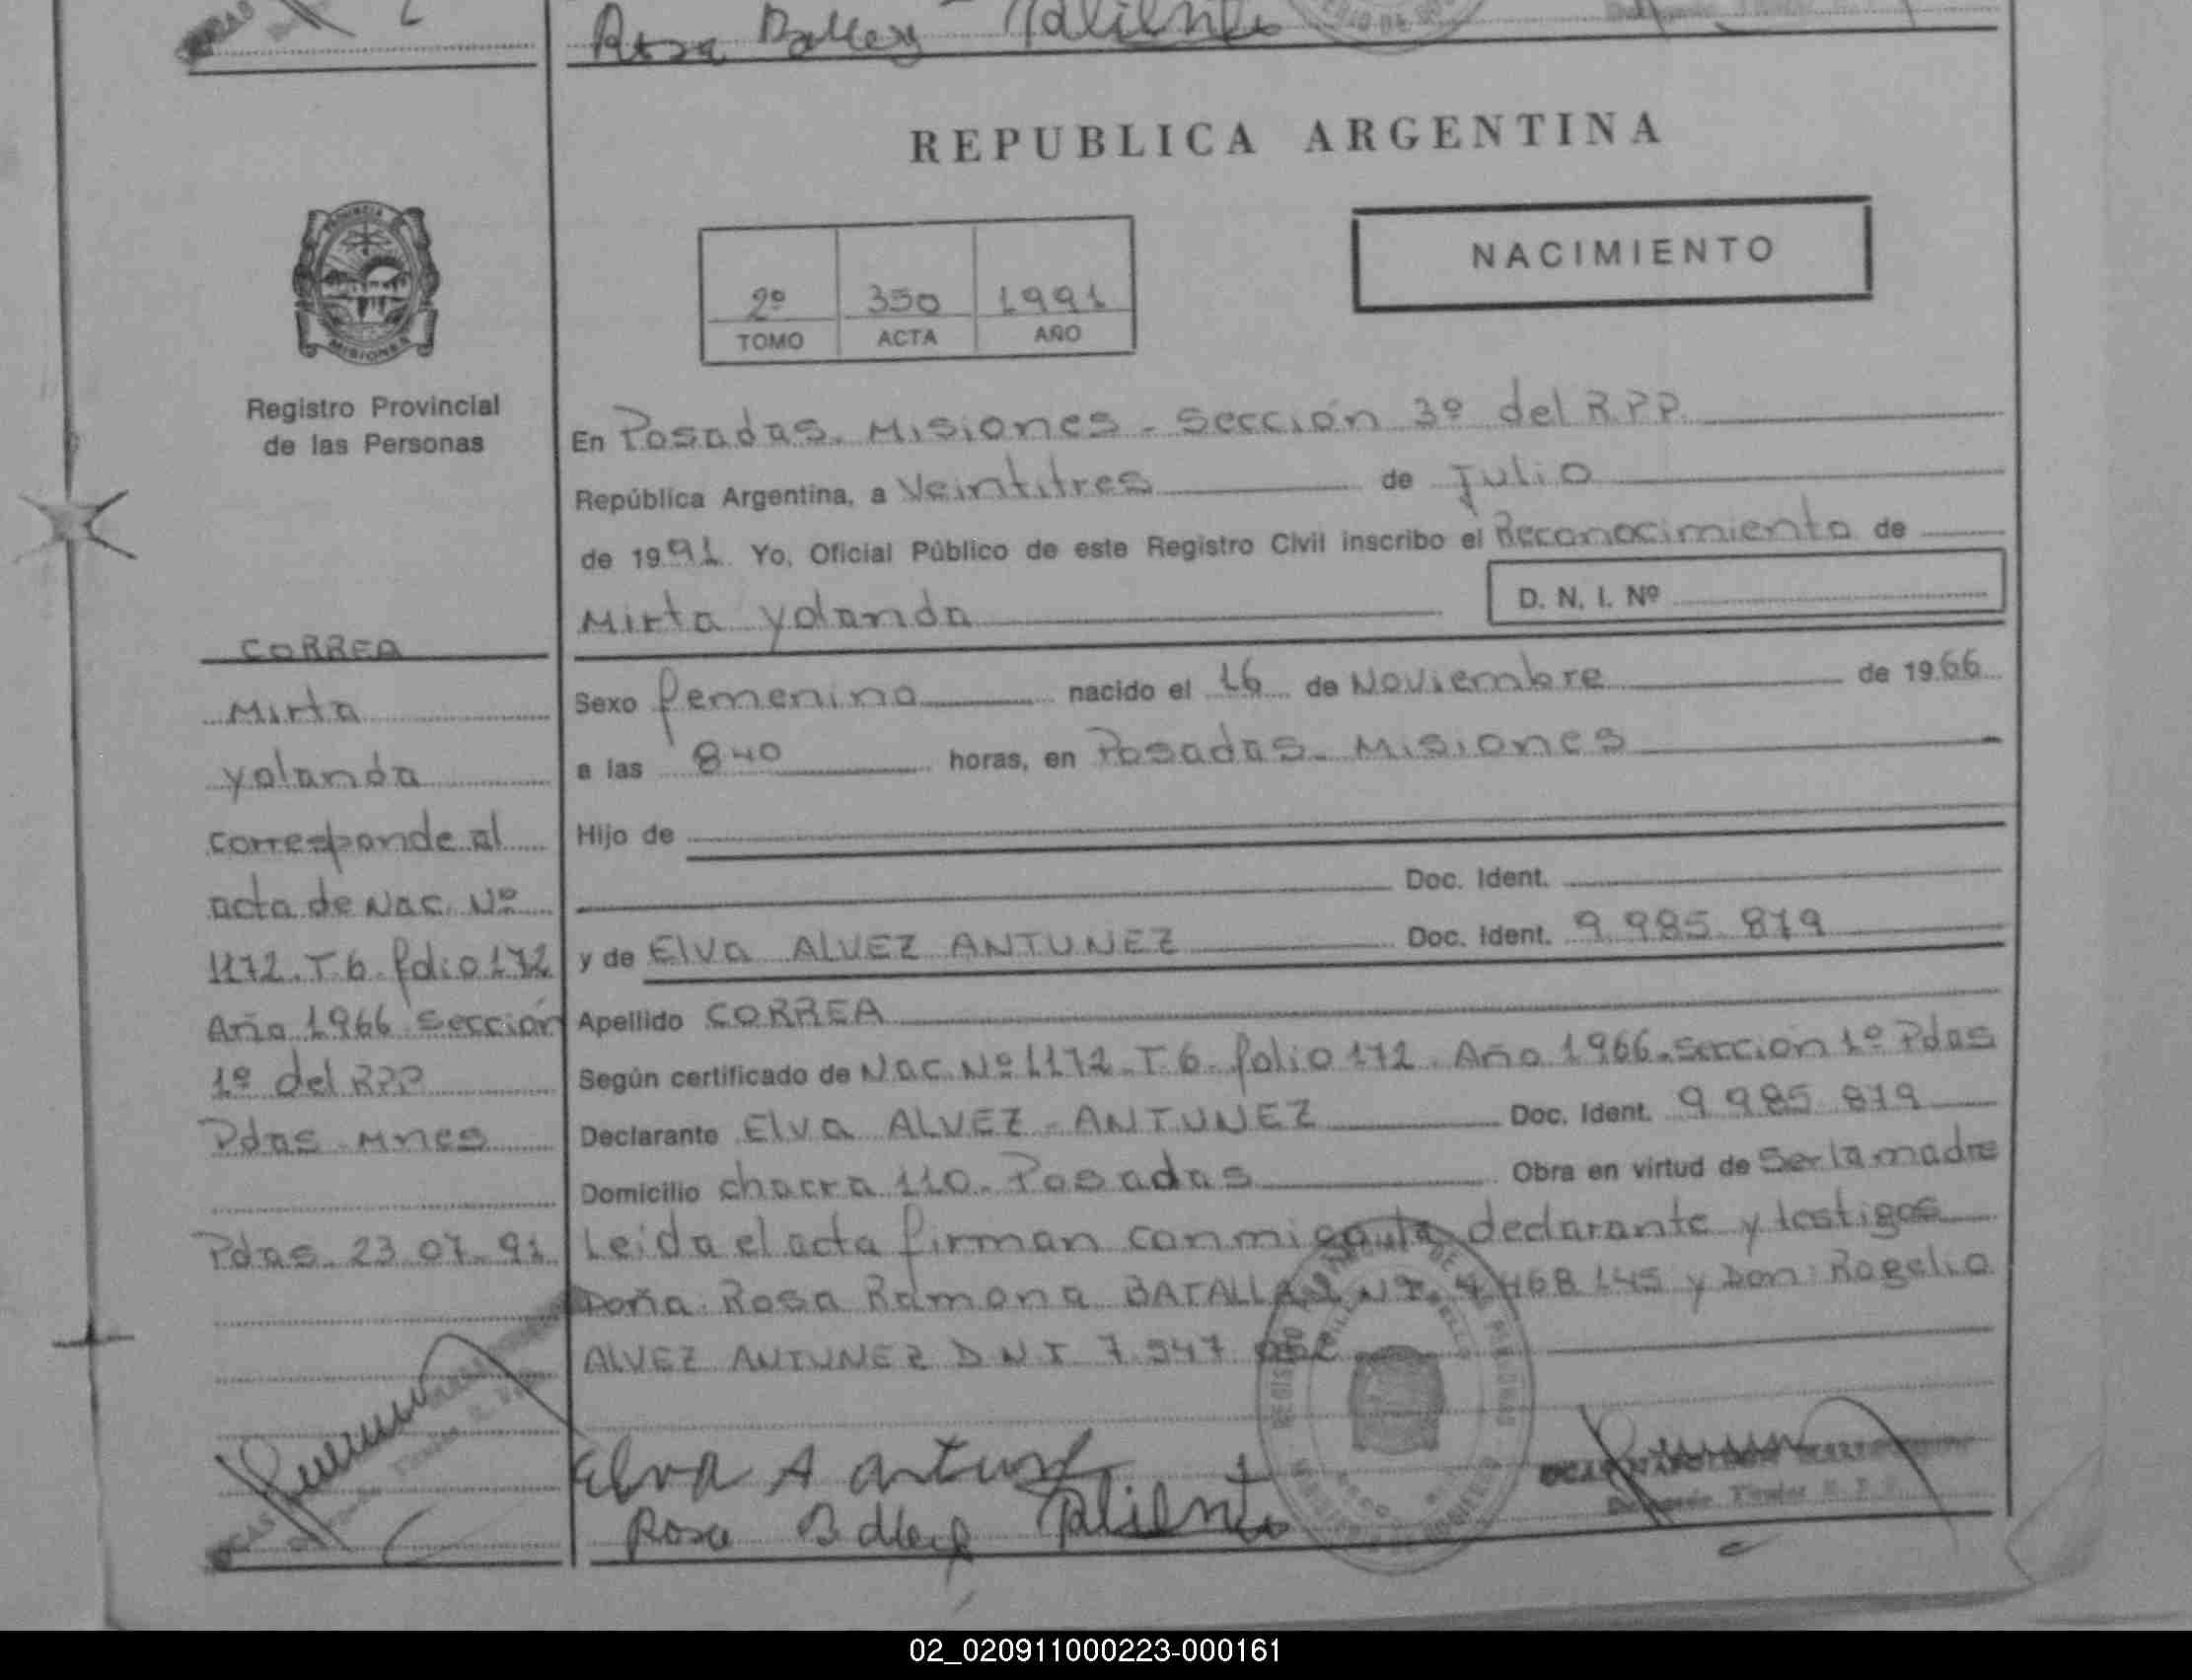 Rosa
REPUBLICA ARGENTINA
NACIMIENTO
2º 350 1991
TOMO ACTA AÑO
MISIONES
Registro Provincial
de las Personas
CORREA
Mirta
Yolanda
corresponde al
acta de Nac. Nº
1172. T. 6. folio 172
Año 1966 Sección
1º del RPP
Pdas - Mnes
Pdas. 23.07.91
En Posadas. Misiones - Sección 3º del R.P.P.
República Argentina, a Veintitres de Julio
de 1991. Yo, Oficial Público de este Registro Civil inscribo el Reconocimiento de
Mirta Yolanda
D. N. I. Nº
Sexo femenino nacido el 16 de Noviembre de 1966
a las 8 40 horas, en Posadas - Misiones
Hijo de
Doc. Ident.
y de Elva ALVEZ ANTUNEZ Doc. Ident. 9.985.879
Apellido CORREA
Según certificado de Nac. Nº 1172. T. 6. folio 172. Año 1966. Sección 1º Pdas
Declarante Elva ALVEZ - ANTUNEZ Doc. Ident. 9.985.879
Domicilio chacra 110. Posadas Obra en virtud de Ser la madre
Leida el acta firman conmigo la declarante y testigos
Doña: Rosa Ramona 468.145 y Don: Rogelio
ALVEZ ANTUNEZ D N I 7.547
Elva A
Rosa
02_020911000223-000161